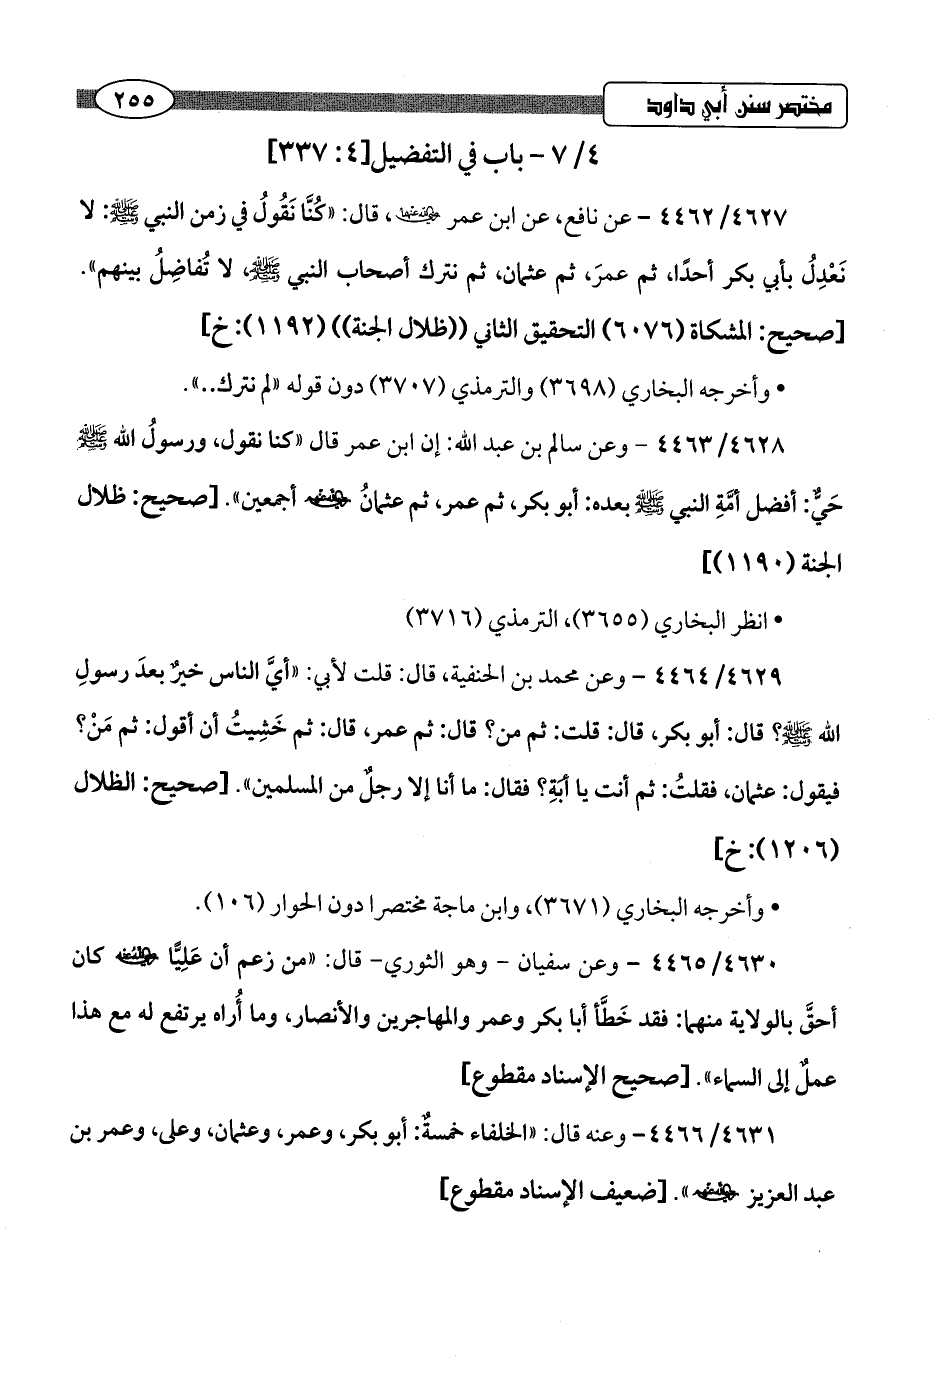 مختصر سنن أبي داود
٢٥٥
٤/ ٧ - باب في التفضيل [٤: ٣٣٧]
٤٤٦٢/٤٦٢٧ - عن نافع، عن ابن عمر رضي الله عنهما، قال: «كُنَّا نَقُولُ في زمن النبي ﷺ: لا
نَعْدِلُ بأبي بكر أحدًا، ثم عمرَ، ثم عثمان، ثم نترك أصحاب النبي ﷺ، لا تُفاضِلُ بينهم».
[صحيح: المشكاة (٦٠٧٦) التحقيق الثاني ((ظلال الجنة)) (١١٩٢): خ]
• وأخرجه البخاري (٣٦٩٨) والترمذي (٣٧٠٧) دون قوله «لم نترك..».
٤٤٦٣/٤٦٢٨ - وعن سالم بن عبد الله: إن ابن عمر قال «كنا نقول، ورسولُ الله ﷺ
حَيٌّ: أفضل أمَّةِ النبي ﷺ بعده: أبو بكر، ثم عمر، ثم عثمانُ رضي الله عنهم أجمعين». [صحيح: ظلال
الجنة (١١٩٠)]
• انظر البخاري (٣٦٥٥)، الترمذي (٣٧١٦)
٤٤٦٤/٤٦٢٩ - وعن محمد بن الحنفية، قال: قلت لأبي: «أيَّ الناس خيرٌ بعدَ رسولِ
الله ﷺ؟ قال: أبو بكر، قال: قلت: ثم من؟ قال: ثم عمر، قال: ثم خَشِيتُ أن أقول: ثم مَنْ؟
فيقول: عثمان، فقلتُ: ثم أنت يا أبَةِ؟ فقال: ما أنا إلا رجلٌ من المسلمين». [صحيح: الظلال
(١٢٠٦): خ]
• وأخرجه البخاري (٣٦٧١)، وابن ماجة مختصرا دون الحوار (١٠٦).
٤٤٦٥/٤٦٣٠ - وعن سفيان - وهو الثوري- قال: «من زعم أن عَلِيًّا رضي الله عنه كان
أحقَّ بالولاية منهما: فقد خَطَّأ أبا بكر وعمر والمهاجرين والأنصار، وما أُراه يرتفع له مع هذا
عملٌ إلى السماء». [صحيح الإسناد مقطوع]
٤٤٦٦/٤٦٣١- وعنه قال: «الخلفاء خمسةٌ: أبو بكر، وعمر، وعثمان، وعلى، وعمر بن
عبد العزيز رضي الله عنهم». [ضعيف الإسناد مقطوع]